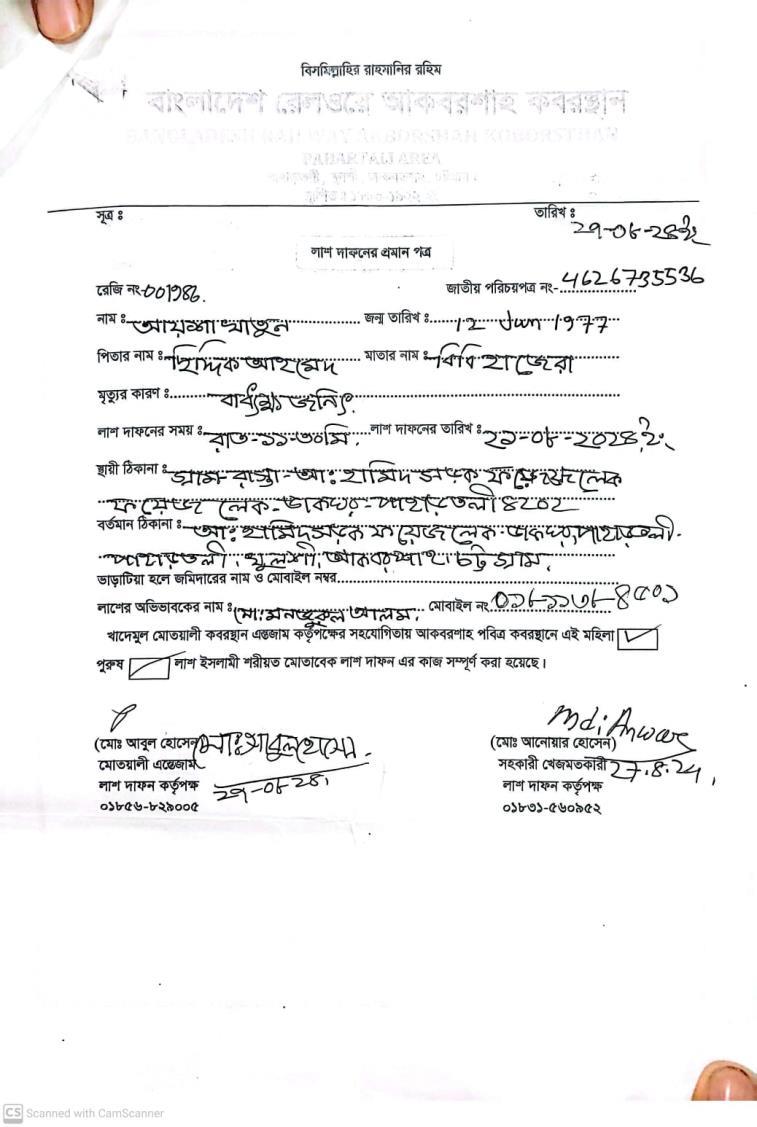 বিসমিল্লাহির রাহমানির রহিম
বাংলাদেশ রেলওয়ে আকবরশাহ কবরস্থান
BANGLADESH RAILWAY AKBORSHAH KOBORSTHAN
PAHARTALI AREA
সূত্র ঃ
তারিখ ঃ ২৭-০৮-২৪ইং
লাশ দাফনের প্রমান পত্র
রেজি নং-001986. জাতীয় পরিচয়পত্র নং- 4626735536
নাম ঃ আয়শা খাতুন জন্ম তারিখ ঃ 12 Jun 1977
পিতার নাম ঃ ছিদ্দিক আহমেদ মাতার নাম ঃ বিবি হাজেরা
মৃত্যুর কারণ ঃ বার্ধক্য জনিৎ.
লাশ দাফনের সময় ঃ রাত-১১-৩০মি. লাশ দাফনের তারিখ ঃ ২১-০৮-২০২৪ইং
স্থায়ী ঠিকানা ঃ গ্রাম-রাস্তা-আঃ হামিদ সড়ক ফয়েজ লেক
ফয়েজ লেক-ডাকঘর-পাহাড়তলী ৪২০২
বর্তমান ঠিকানা ঃ আঃ হামিদ সড়ক ফয়েজ লেক-ডাকঘর, পাহাড়তলী.
পাহাড়তলী, খুলশী, আকবরশাহ, চট্টগ্রাম.
ভাড়াটিয়া হলে জমিদারের নাম ও মোবাইল নম্বর
লাশের অভিভাবকের নাম ঃ মো: মনজুরুল আলম. মোবাইল নং
খাদেমুল মোতয়ালী কবরস্থান এন্তেজাম কর্তৃপক্ষের সহযোগিতায় আকবরশাহ পবিত্র কবরস্থানে এই মহিলা
পুরুষ লাশ ইসলামী শরীয়ত মোতাবেক লাশ দাফন এর কাজ সম্পূর্ণ করা হয়েছে।
(মোঃ আবুল হোসেন) মোঃ আবুল হোসেন.
মোতয়ালী এন্তেজাম
লাশ দাফন কর্তৃপক্ষ ২৭-০৮-২৪.
০১৮৫৬-৮২৯০০৫
Md: Anware
(মোঃ আনোয়ার হোসেন)
সহকারী খেজমতকারী 27.8.24.
লাশ দাফন কর্তৃপক্ষ
০১৮৩১-৫৬০৯৫২
CS Scanned with CamScanner